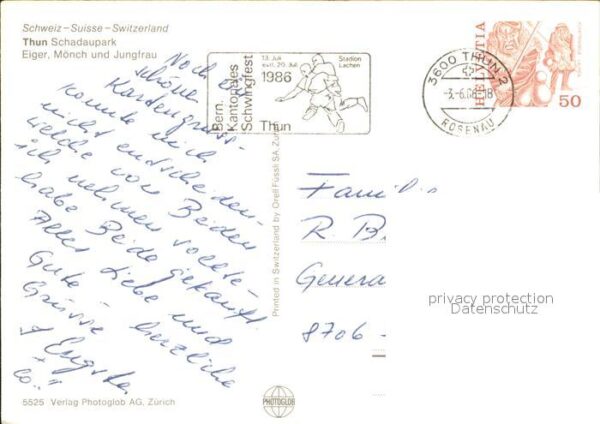 Schweiz – Suisse – Switzerland
Thun Schadaupark
Eiger, Mönch und Jungfrau
Noch ein
schöner
Kartengruss-
konnte mich
nicht entscheiden-
welche von Beiden
ich nehmen sollte-
habe Beide gekauft
Alles Liebe und
Gute
herzliche
Grüsse
5525 Verlag Photoglob AG, Zürich
PHOTOGLOB
Printed in Switzerland by Orell Füssli SA, Zürich
Bern.
Kantonales
Schwingfest
13. Juli
evtl. 20. Juli
1986
Stadion
Lachen
Thun
3600 THUN 2
ROSENAU
HELVETIA
50
Famili
R. B.
Genera
8706 -
privacy protection
Datenschutz